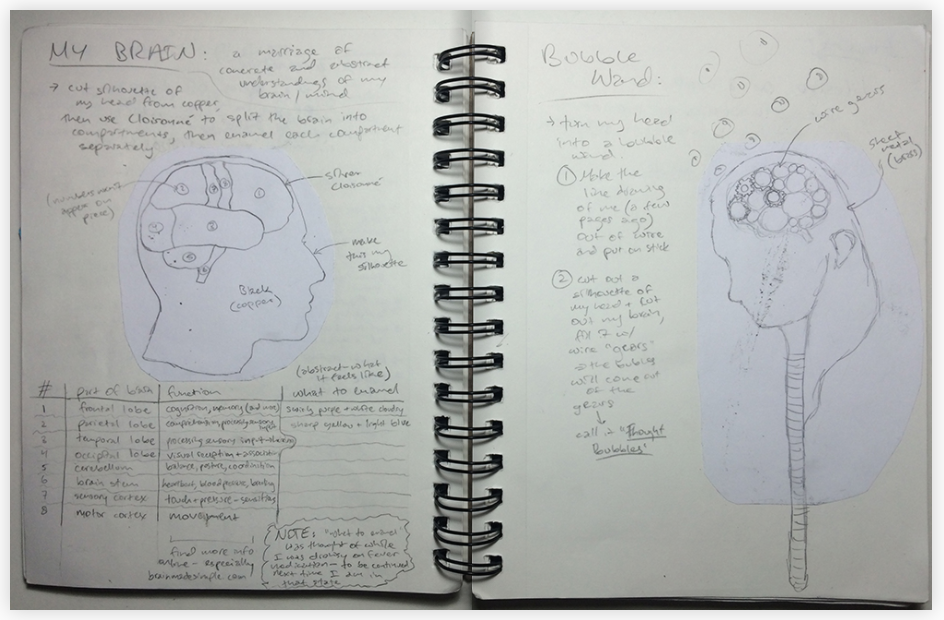 MY BRAIN: a marriage of
concrete and abstract
understandings of my
brain/mind
→ cut silhouette of
my head from copper,
then use Cloisonné to split the brain into
compartments, then enamel each compartment
separately
(numbers
appear on
piece)
1
2
silver
cloisonné
make
this my
silhouette
Black
(copper)
(abstract-what
it feels like)
# part of brain function what to enamel
1 frontal lobe cognition, memory
2 parietal lobe sharp yellow + light blue
3 temporal lobe processing sensory input
4 occipital lobe visual reception +
5 cerebellum balance, posture, coordination
6 brain stem heartbeat, blood pressure,
7 sensory cortex touch + pressure - sensitivity
8 motor cortex movement
find more info
online - especially
NOTE: "what to enamel"
was thought of while
I was drowsy on fever
medication - to be continued
next time I am in
that state
Bubble
Wand:
→ turn my head
into a bubble
wand.
① Make the
line drawing
of me (a few
pages ago)
out of wire
and put on stick
② cut out a
silhouette of
my head + cut
out my brain,
fill it w/
wire "gears"
→ the bubbles
will come out
of the
gears
↓
call it "Thought
Bubbles"
wire gears
sheet
metal
(brass)